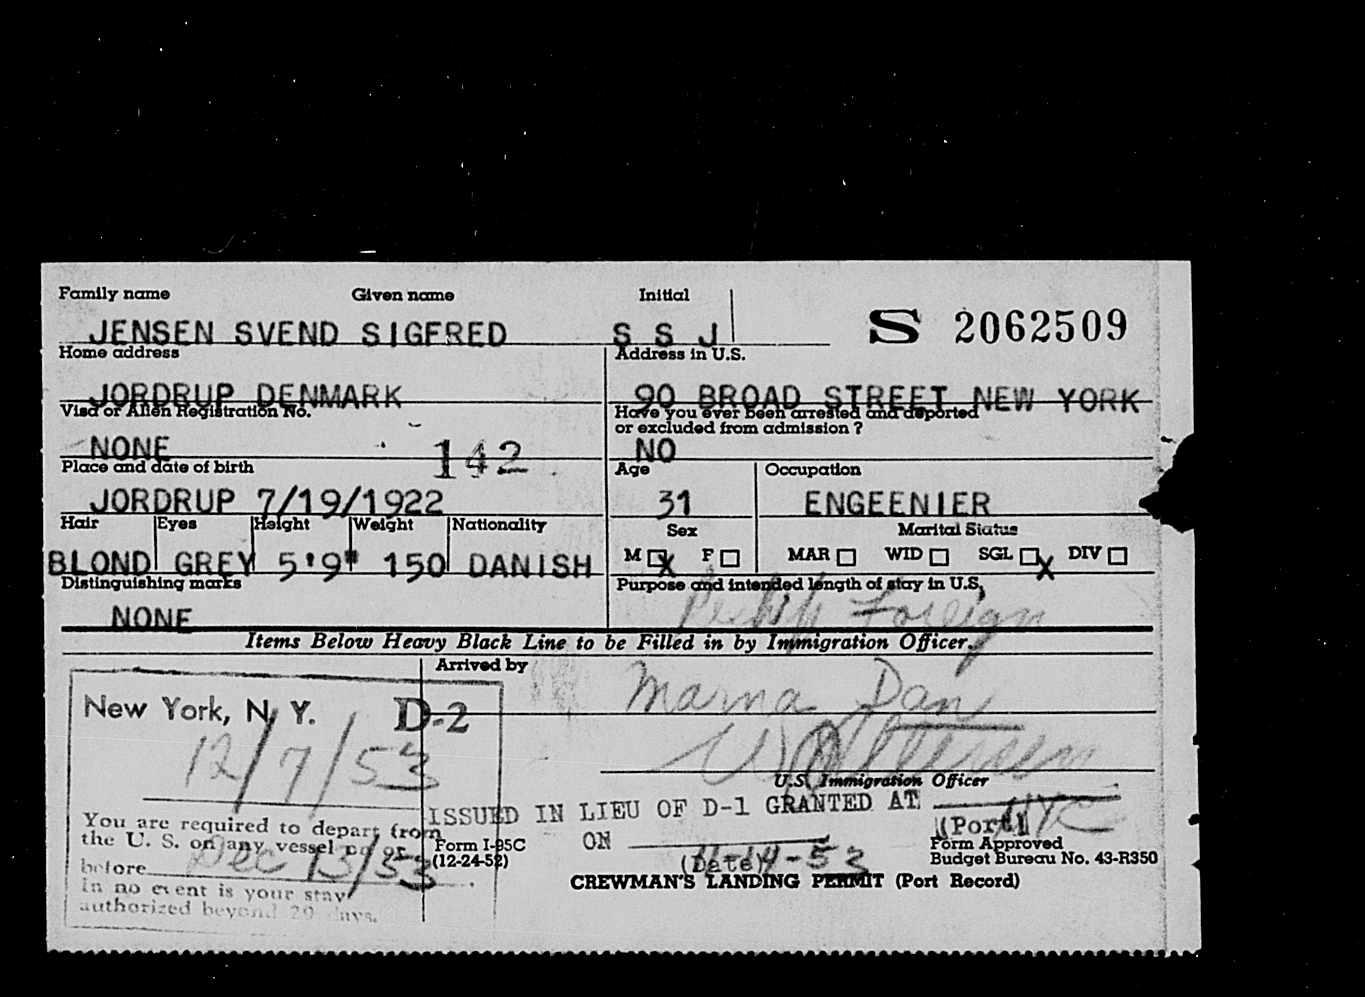 Family name Given name Initial
JENSEN SVEND SIGFRED S S J S 2062509
Home address Address in U.S.
JORDRUP DENMARK 90 BROAD STREET NEW YORK
Visa or Alien Registration No. Have you ever been arrested and deported
or excluded from admission?
NONE 142 NO
Place and date of birth Age Occupation
JORDRUP 7/19/1922 31 ENGEENIER
Hair Eyes Height Weight Nationality Sex Marital Status
M X F MAR WID SGL X DIV
BLOND GREY 5'9" 150 DANISH
Distinguishing marks Purpose and intended length of stay in U.S.
NONE Foreign
Items Below Heavy Black Line to be Filled in by Immigration Officer.
Arrived by
Marna Dan
New York, N. Y. D-2
12/7/53
U.S. Immigration Officer
ISSUED IN LIEU OF D-1 GRANTED AT NYC
(Port)
You are required to depart from
the U. S. on any vessel on or
before Dec 13/53
In no event is your stay
authorized beyond 29 days.
Form I-95C
(12-24-52)
ON 11-14-53
(Date)
Form Approved
Budget Bureau No. 43-R350
CREWMAN'S LANDING PERMIT (Port Record)